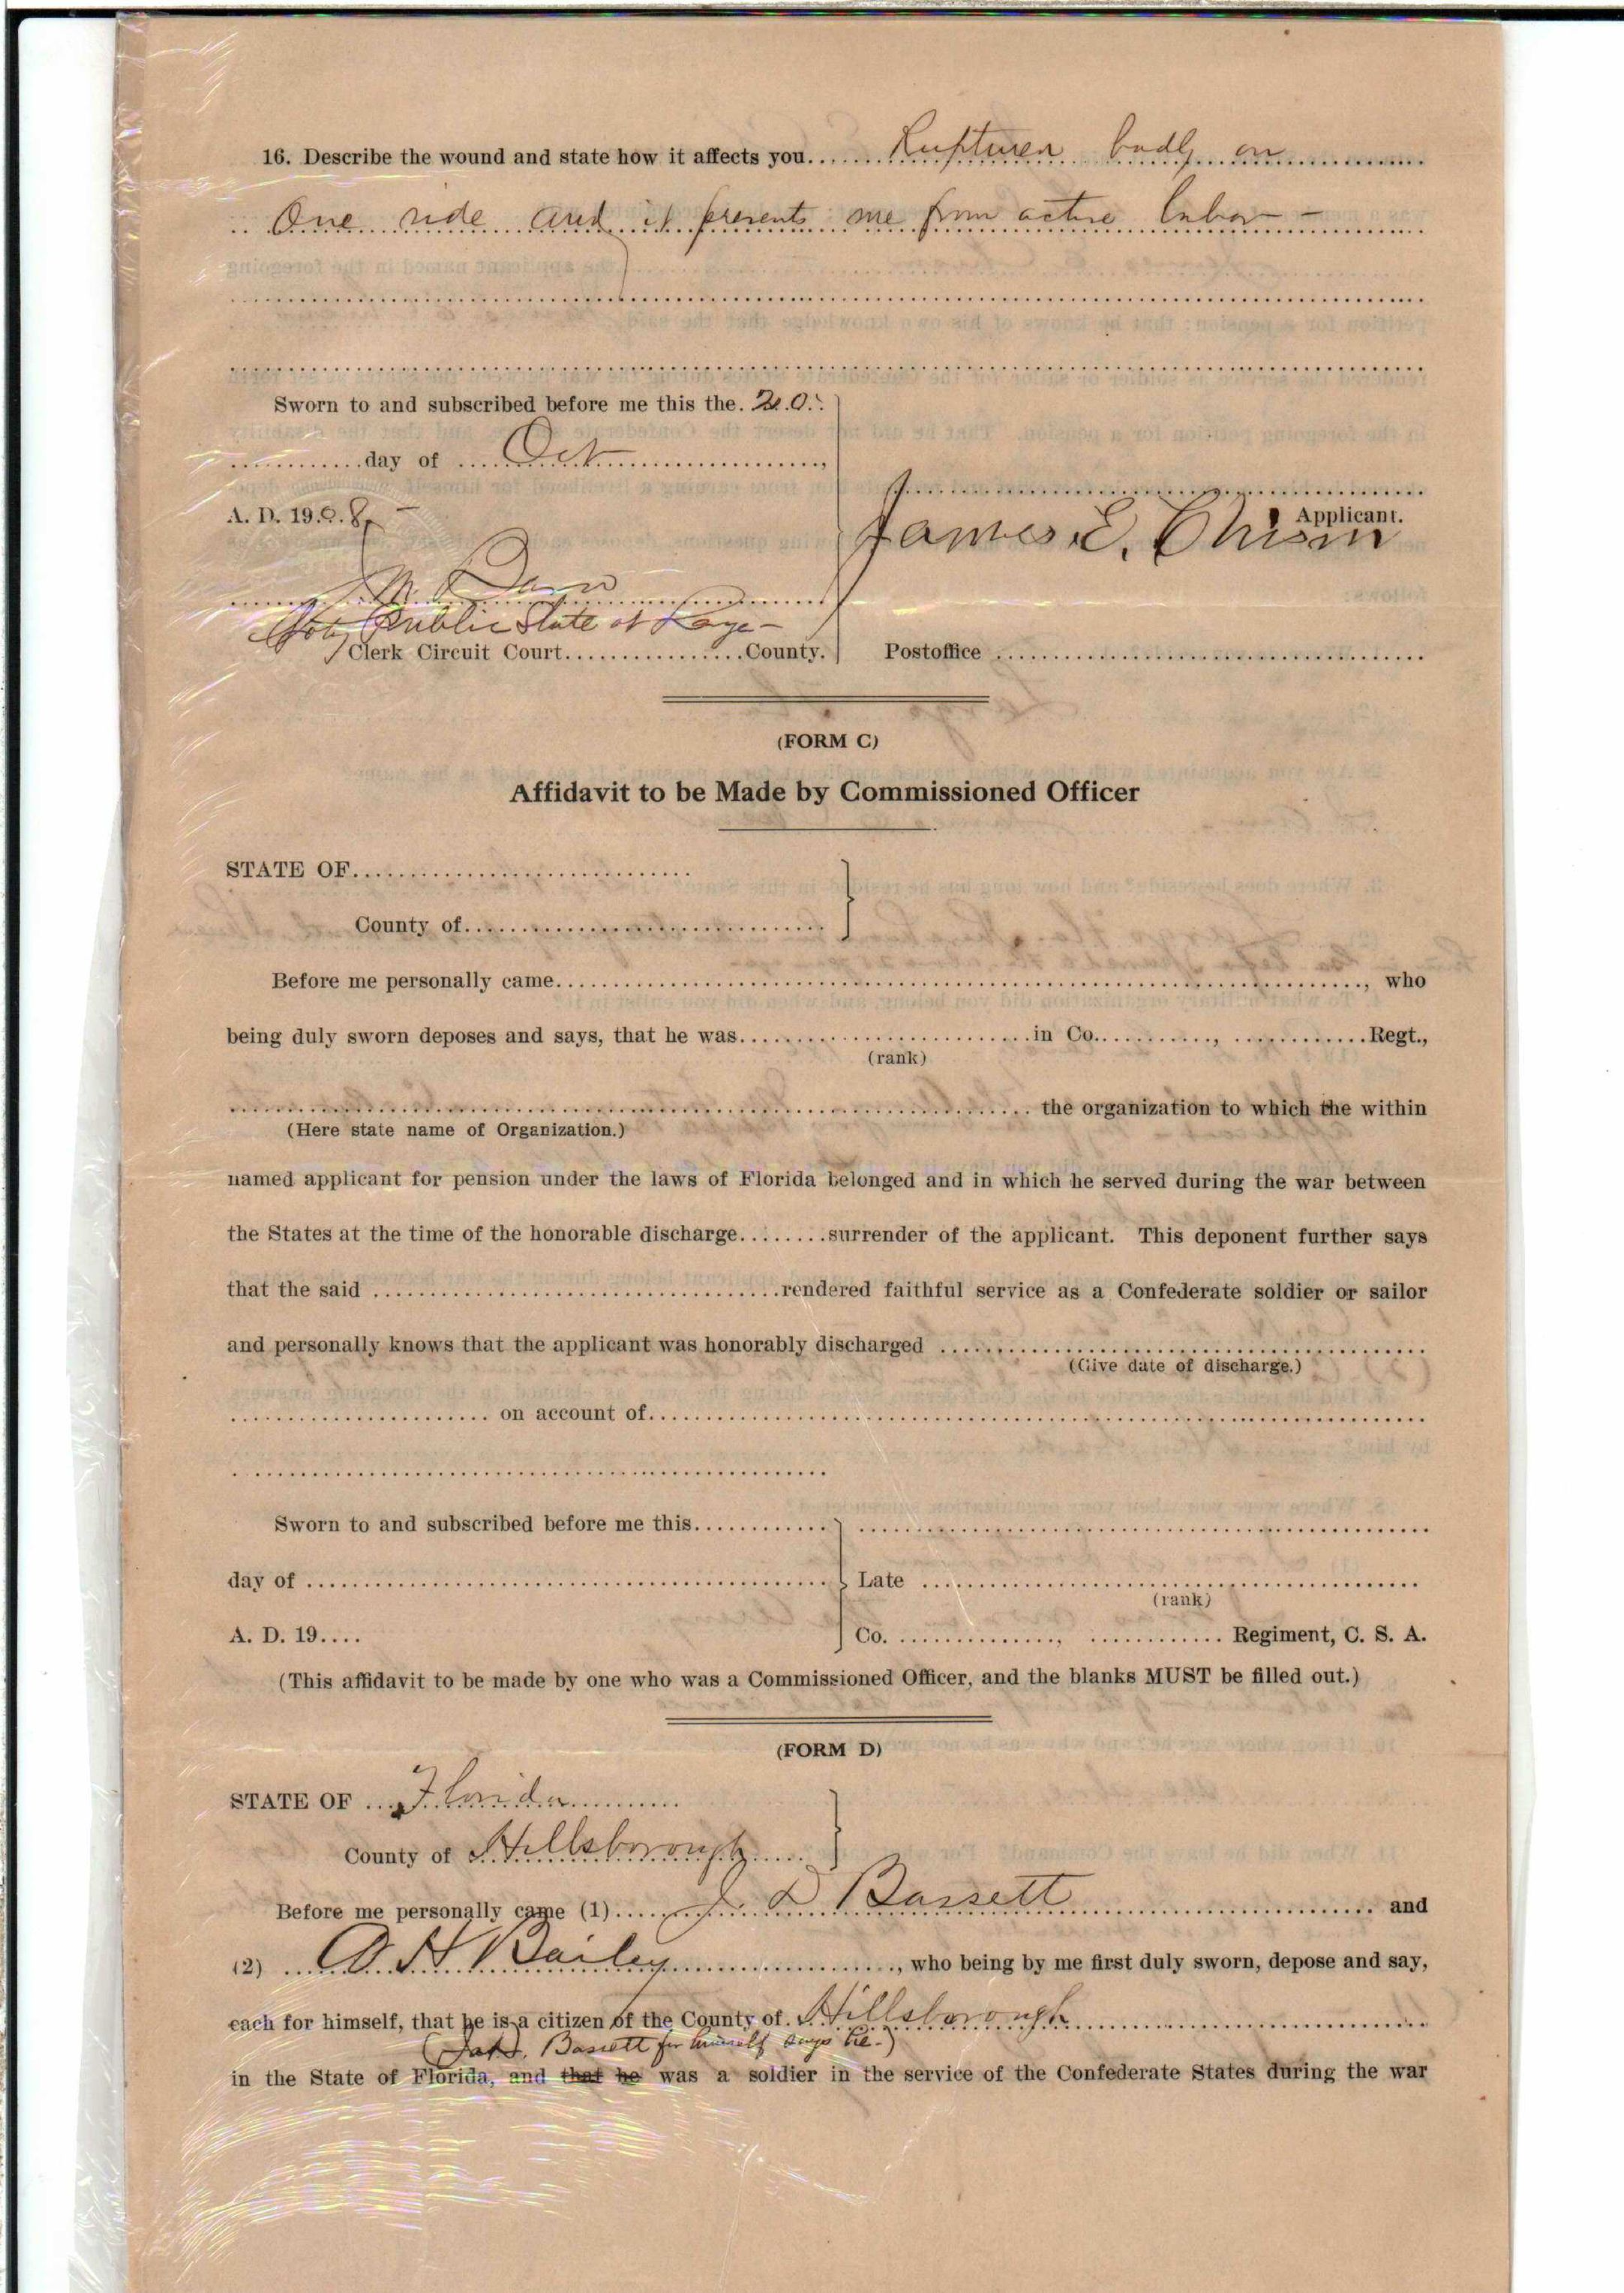 16. Describe the wound and state how it affects you........Ruptured badly on..............
One side and it prevents me from active labor -
Sworn to and subscribed before me this the. 20.
............day of ....Oct........................,
A. D. 190.8,
Applicant.
James E. Chism
Public State at Large -
Clerk Circuit Court..................County. Postoffice ..........................................
(FORM C)
Affidavit to be Made by Commissioned Officer
STATE OF..............................
County of................................
Before me personally came......................................................................, who
being duly sworn deposes and says, that he was..........................in Co..........., ............Regt.,
(rank)
........................................................................ the organization to which the within
(Here state name of Organization.)
named applicant for pension under the laws of Florida belonged and in which he served during the war between
the States at the time of the honorable discharge........surrender of the applicant. This deponent further says
that the said ....................................rendered faithful service as a Confederate soldier or sailor
and personally knows that the applicant was honorably discharged ...........................................
(Give date of discharge.)
....................... on account of.....................................................................
Sworn to and subscribed before me this............ ..................................................
day of .............................................. Late ............................................
(rank)
A. D. 19.... Co. .............., ............ Regiment, C. S. A.
(This affidavit to be made by one who was a Commissioned Officer, and the blanks MUST be filled out.)
(FORM D)
STATE OF ....Florida..........
County of Hillsborough.....
Before me personally came (1)......J. D Bassett........................... and
(2) ...D. H. Bailey...................., who being by me first duly sworn, depose and say,
each for himself, that he is a citizen of the County of. Hillsborough................................
( Bassett for himself says he.)
in the State of Florida, and that he was a soldier in the service of the Confederate States during the war